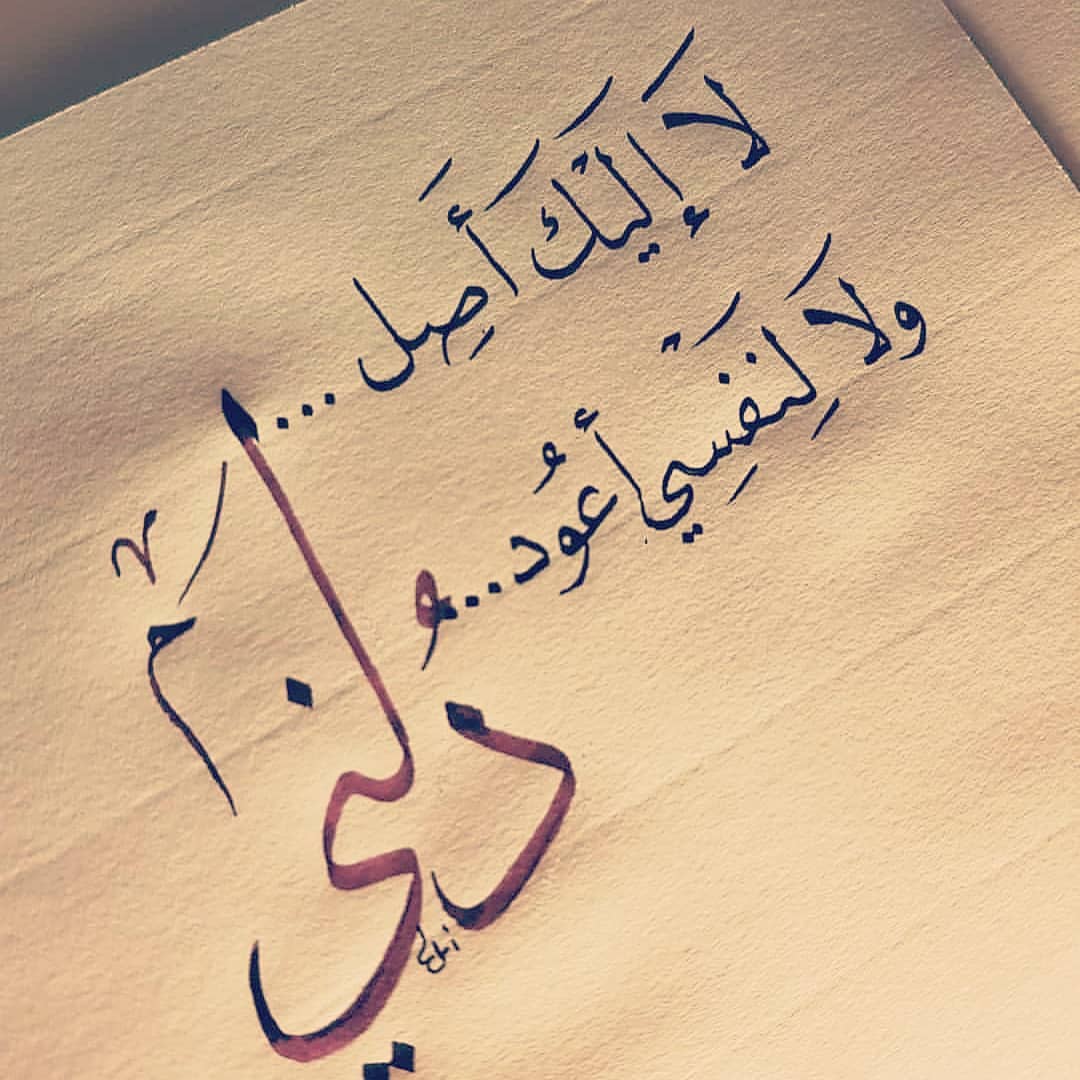 لاَ إِليْكَ أَصِل ...
ولاَ لِنفْسِي أَعُود ...
دُلني